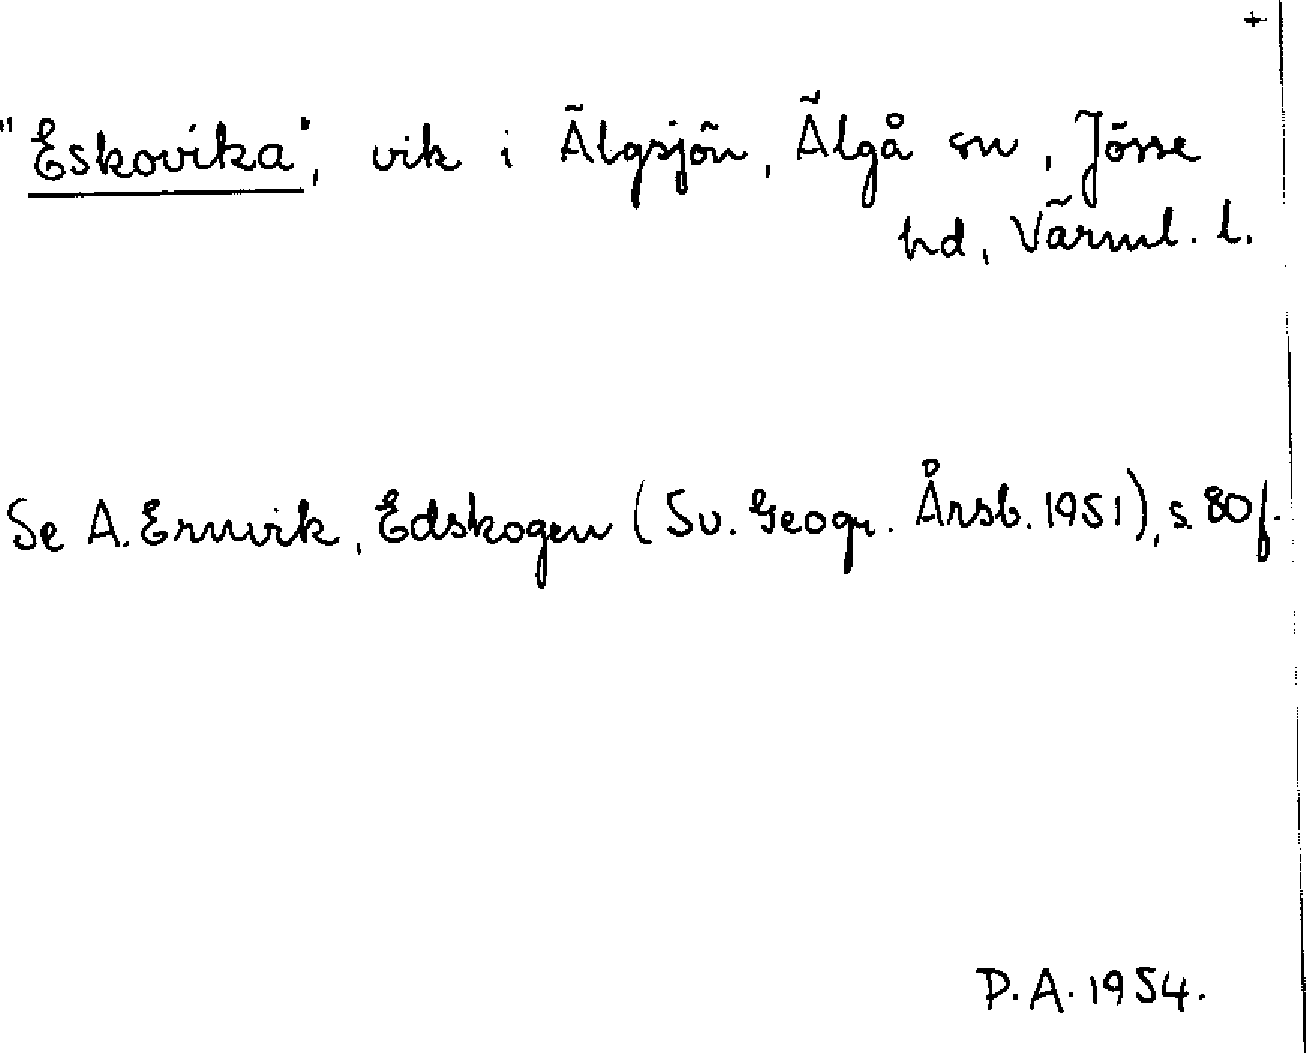 +
"Eskovika", vik i Älgsjön, Älgå sn, Jösse
hd, Värml. l.
Se A. Ernvik, Edskogen (Sv. Geogr. Årsb. 1951), s. 80 f.
P.A. 1954.